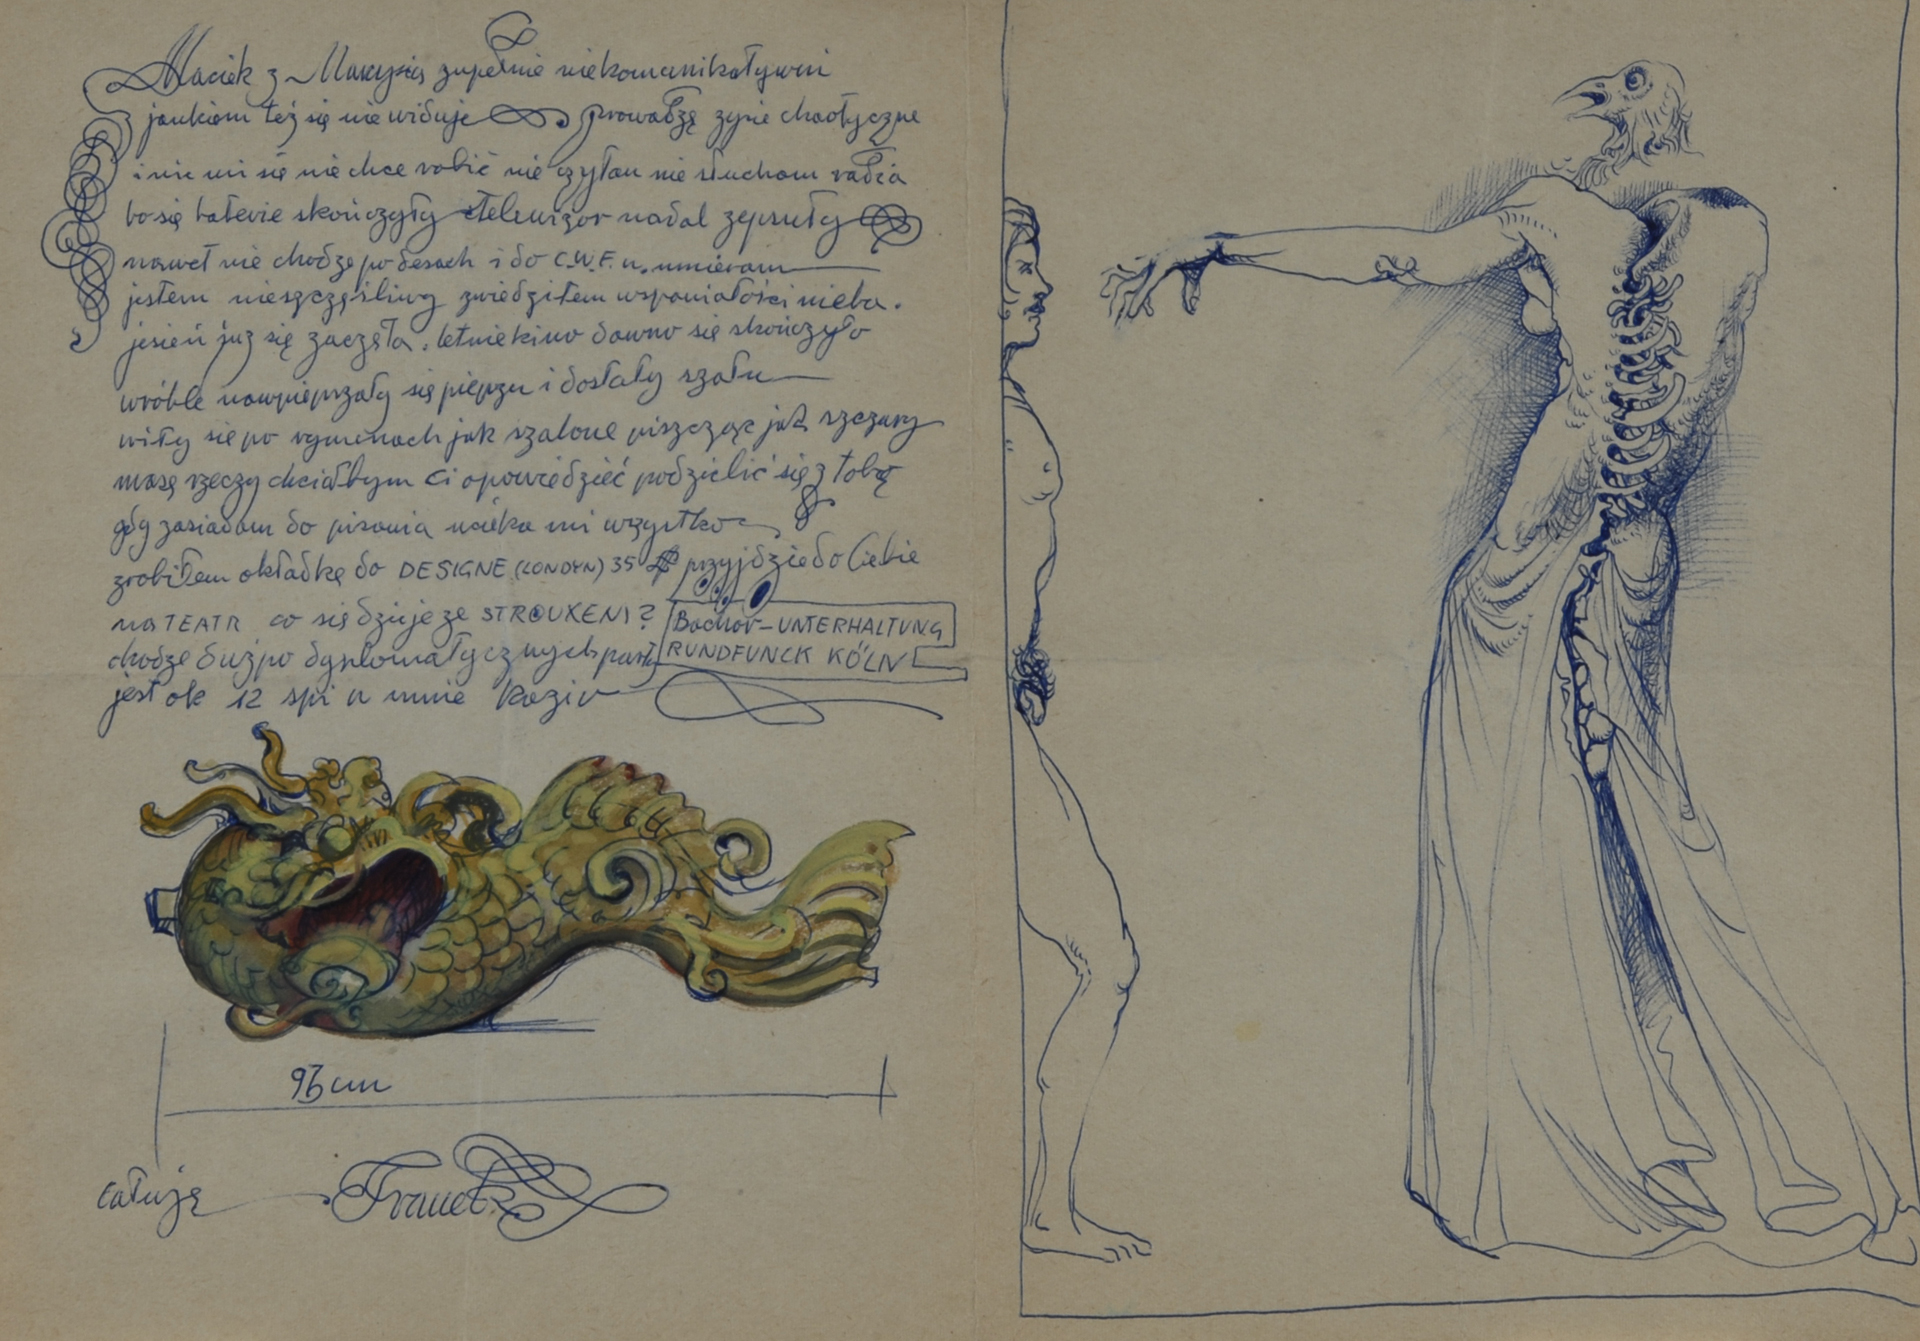 Maciek z Marysią zupełnie niekomunikatywni
jankiem też się nie widuje prowadzę życie chaotyczne
i nic mi się nie chce robić nie czytam nie słucham radia
bo się baterie skończyły telewizor nadal zepsuty
nawet nie chodzę po desach i do C.W.F. u. umieram
jestem nieszczęśliwy zwiedziłem wspaniałości nieba.
jesień już się zaczęła. letnie kino dawno się skończyło
wróble nawpieprzały się pieprzu i dostały szału
wiły się po rynnach jak szalone piszcząc jak szczury
masę rzeczy chciałbym Ci opowiedzieć podzielić się z tobą
gdy zasiadam do pisania ucieka mi wszystko
zrobiłem okładkę do DESIGNE (LONDYN) 35 przyjdzie do Ciebie
na TEATR co się dzieje ze STROUXEM?
Bachor-UNTERHALTUNG
RUNDFUNCK KÖLN
chodzę dużo po dyplomatycznych party
jest ok 12 śpi u mnie Kazio
93 cm
całuję Franek